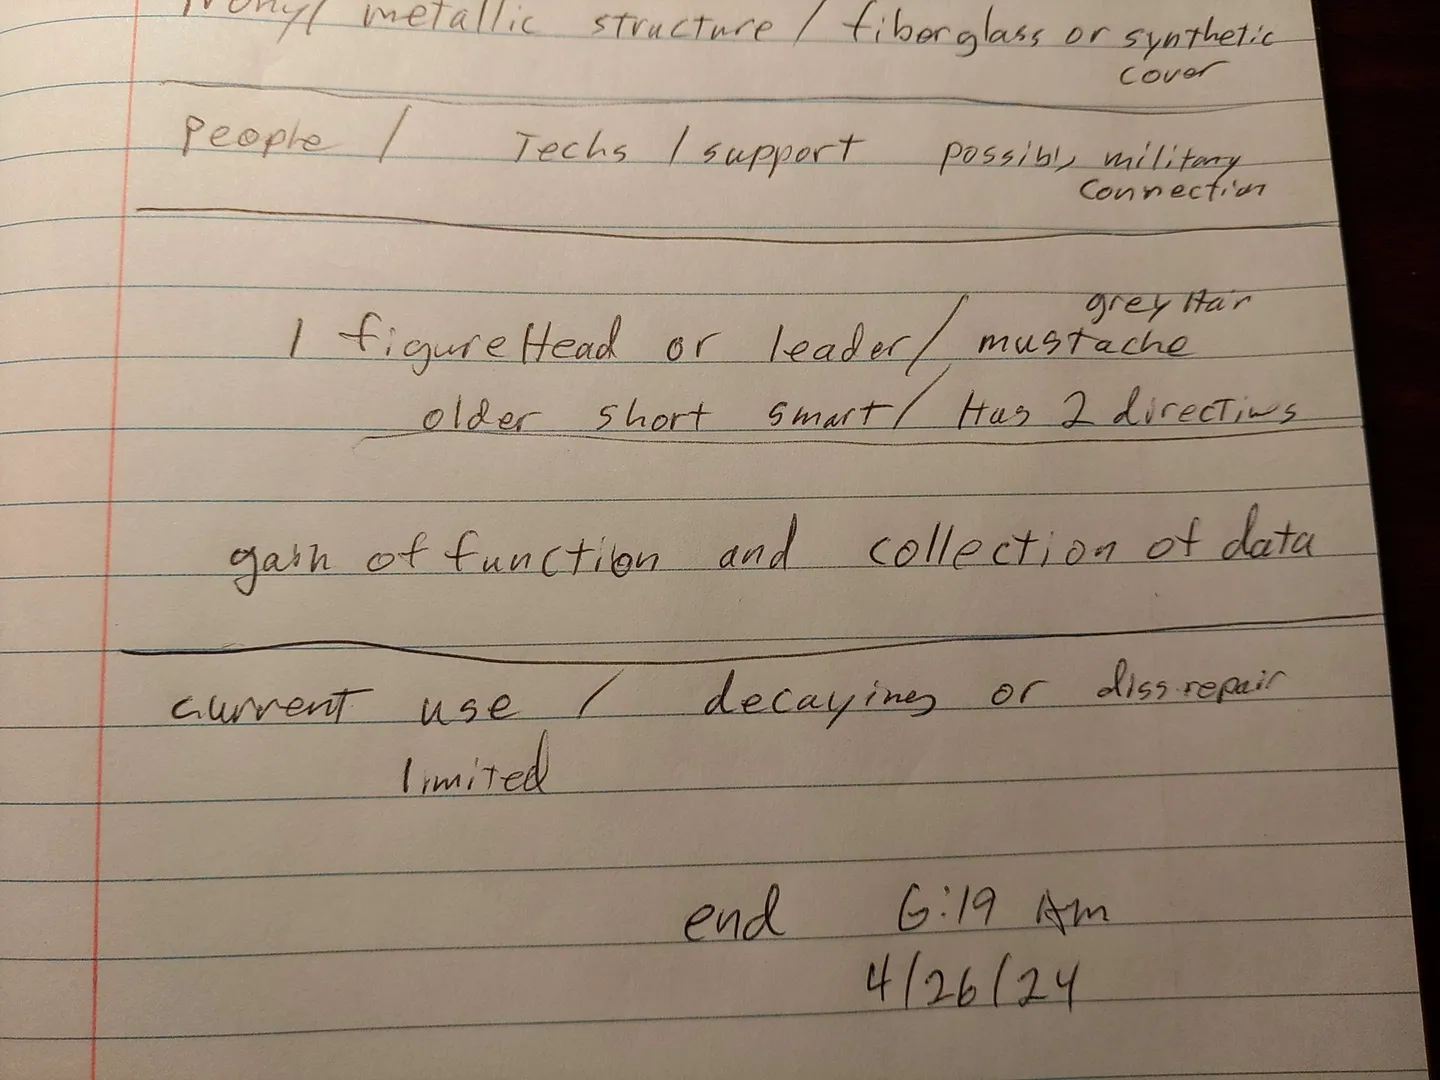 metallic structure / fiberglass or synthetic
cover
People / Techs / support possibly military
connection
grey Hair
1 figureHead or leader / mustache
older short smart / Has 2 directives
gain of function and collection of data
current use / decaying or dissrepair
limited
end 6:19 Am
4/26/24